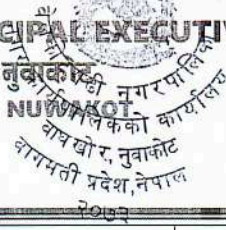 CIPAL EXECUTI
नुवाकोट
NUWAKOT
नगरपालि
कार्यपालिकाको कार्यालय
नुवाकोट
बागमती प्रदेश, नेपाल
२०७३